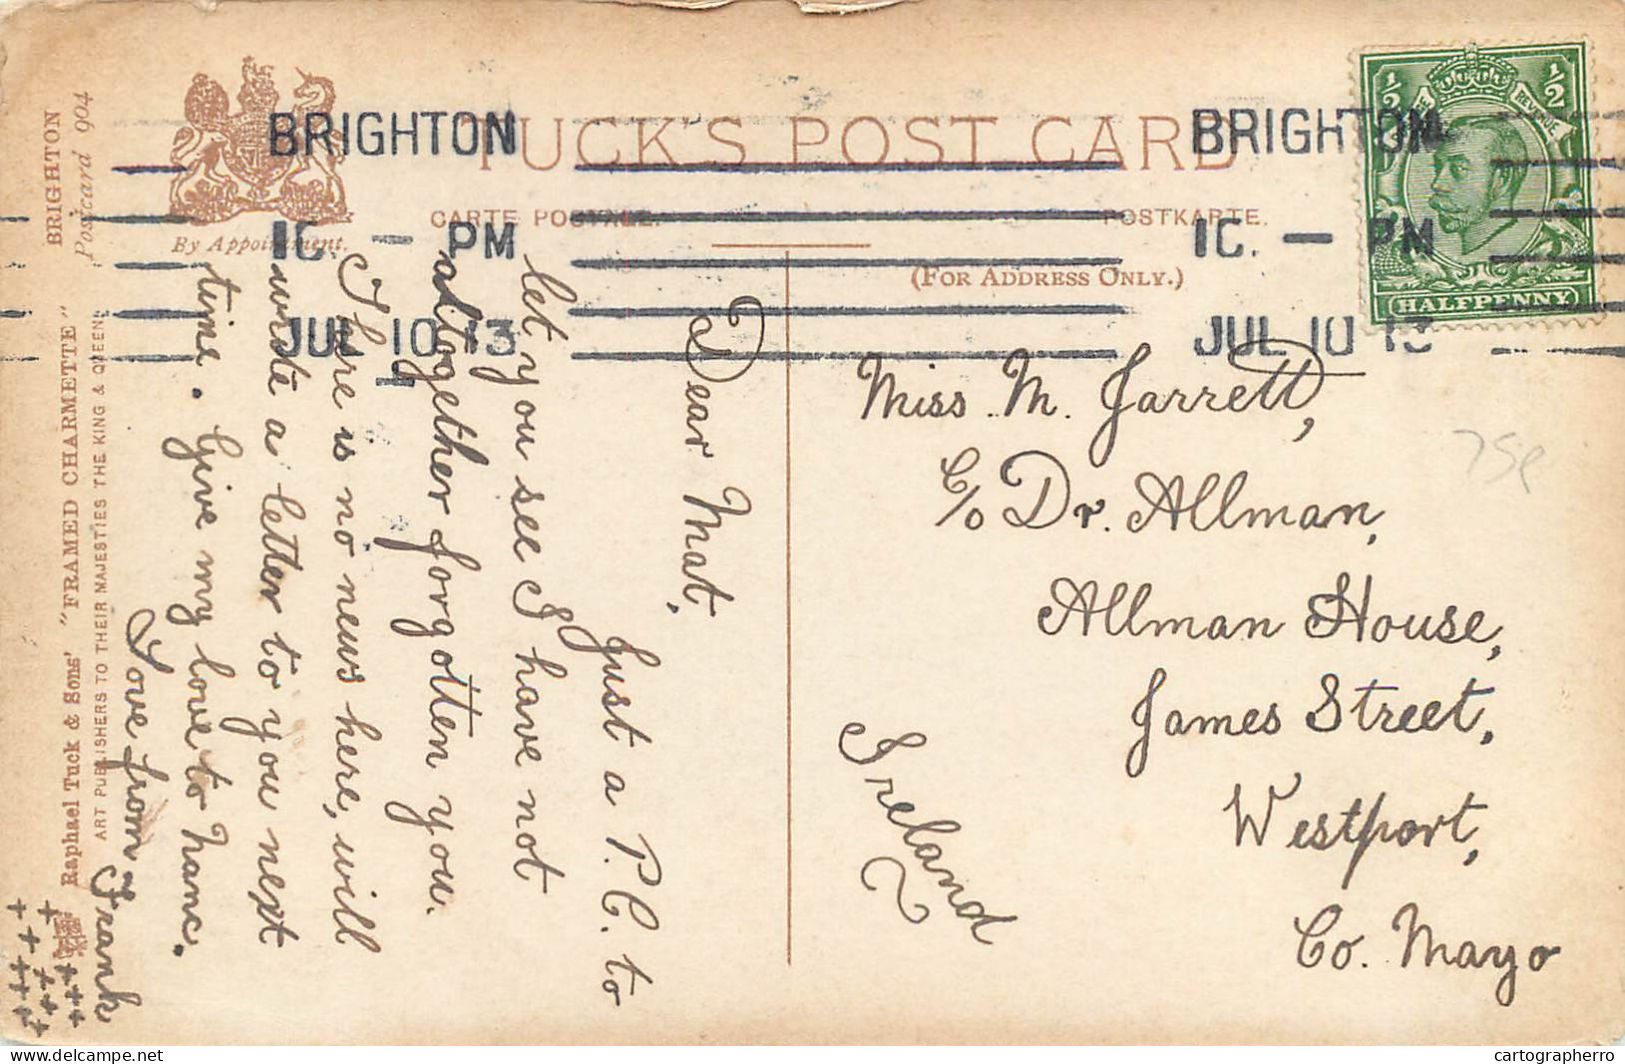 TUCK'S POST CARD
CARTE POSTALE.
POSTKARTE.
By Appointment.
(FOR ADDRESS ONLY.)
BRIGHTON
Postcard 904
Raphael Tuck & Sons' "FRAMED CHARMETTE"
ART PUBLISHERS TO THEIR MAJESTIES THE KING & QUEEN.
BRIGHTON
1C. - PM
JUL 10 13
BRIGHTON
1C. - PM
JUL 10 13
REVENUE
½ ½
HALFPENNY
Dear Mat,
Just a P.C. to
let you see I have not
altogether forgotten you.
There is no news here, will
write a letter to you next
time. Give my love to Nanc.
Love from Frank
+ + + + + + + + + + + +
Miss M. Jarrett,
C/o Dr. Allman,
Allman House,
James Street,
Westport,
Co. Mayo
Ireland
75p
cartographerro